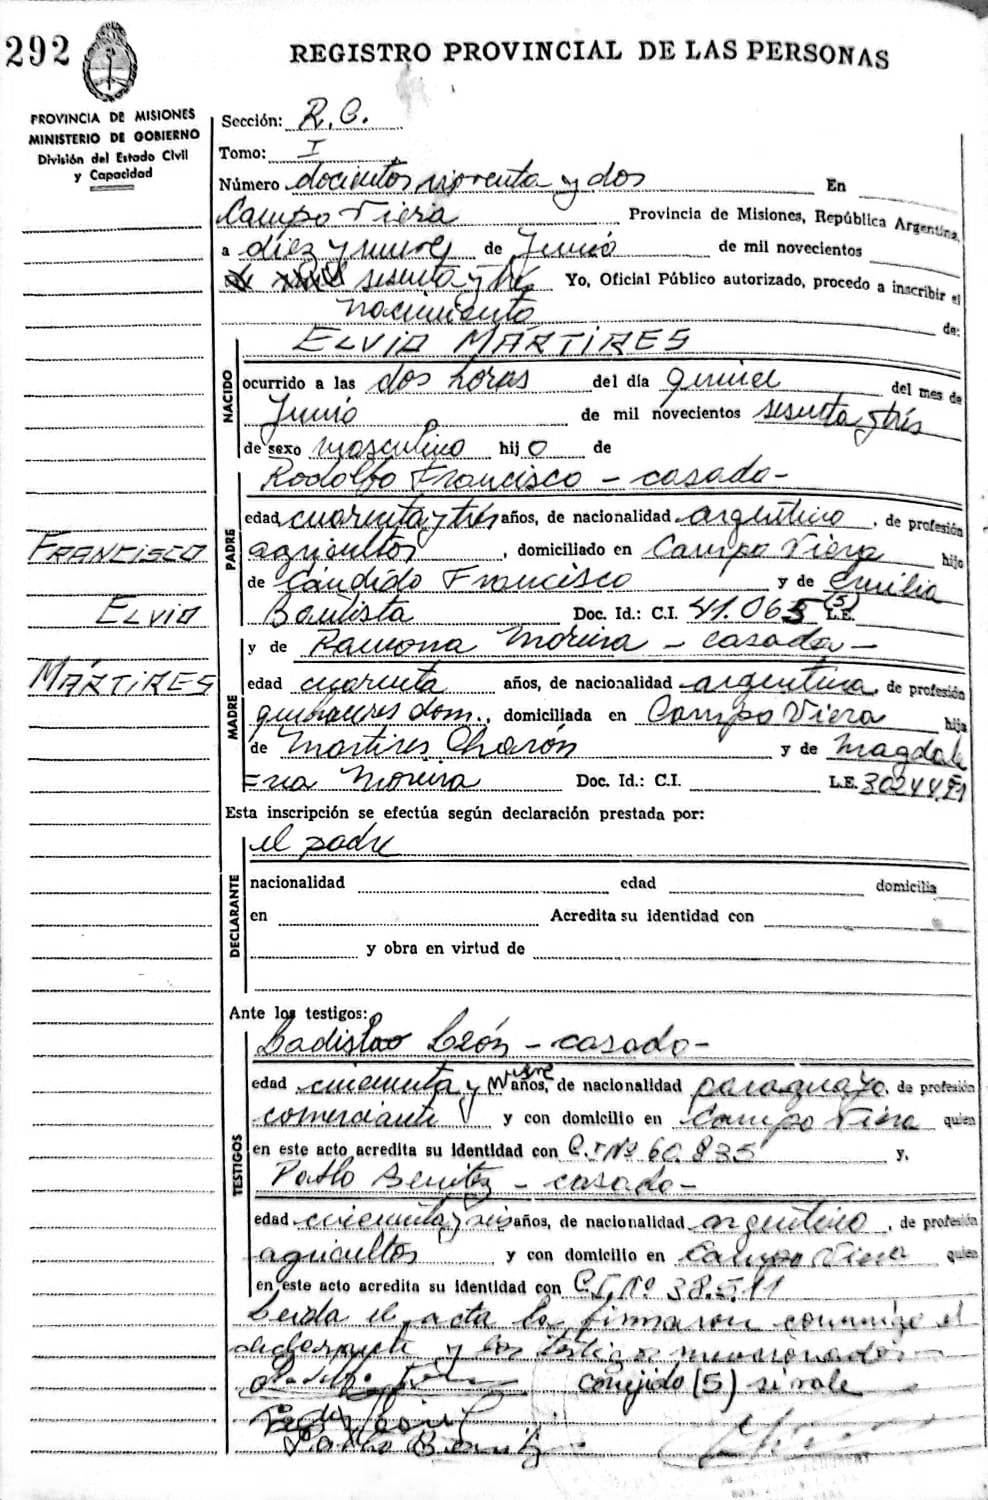 292
REGISTRO PROVINCIAL DE LAS PERSONAS
PROVINCIA DE MISIONES
MINISTERIO DE GOBIERNO
División del Estado Civil
y Capacidad
Sección: R. C.
Tomo: I
Número docientos noventa y dos En
Campo Viera Provincia de Misiones, República Argentina,
a diez y nueve de Junio de mil novecientos
sesenta y tres Yo, Oficial Público autorizado, procedo a inscribir el
nacimiento de:
NACIDO
ELVIO MÁRTIRES
ocurrido a las dos horas del día quince del mes de
Junio de mil novecientos sesenta y trés
de sexo masculino hijo de
PADRE
Rodolfo Francisco - casado -
edad cuarenta y trés años, de nacionalidad argentino, de profesión
agricultor, domiciliado en Campo Viera hijo
de Cándido Francisco y de Emilia
Bautista Doc. Id.: C.I. 41.065 (5) L.E.
FRANCISCO
ELVIO
MÁRTIRES
MADRE
y de Ramona Moreira - casada -
edad cuarenta años, de nacionalidad argentina, de profesión
quehaceres dom., domiciliada en Campo Viera hija
de Martires Charón y de Magdale
=na Moreira Doc. Id.: C.I. L.E.
Esta inscripción se efectúa según declaración prestada por:
el padre
DECLARANTE
nacionalidad edad domicilia
en Acredita su identidad con
y obra en virtud de
Ante los testigos:
TESTIGOS
Ladislao León - casado -
edad cincuenta y nueve años, de nacionalidad paraguayo, de profesión
comerciante y con domicilio en Campo Viera quien
en este acto acredita su identidad con C.I Nº 60.835 y,
Pablo Benitez - casado -
edad cincuenta y seis años, de nacionalidad argentino, de profesión
agricultor y con domicilio en Campo Viera quien
en este acto acredita su identidad con C.I. Nº 38.511
Leida el acta la firmaron conmigo el
declarante y los testigos mencionados
corregido (5) si vale